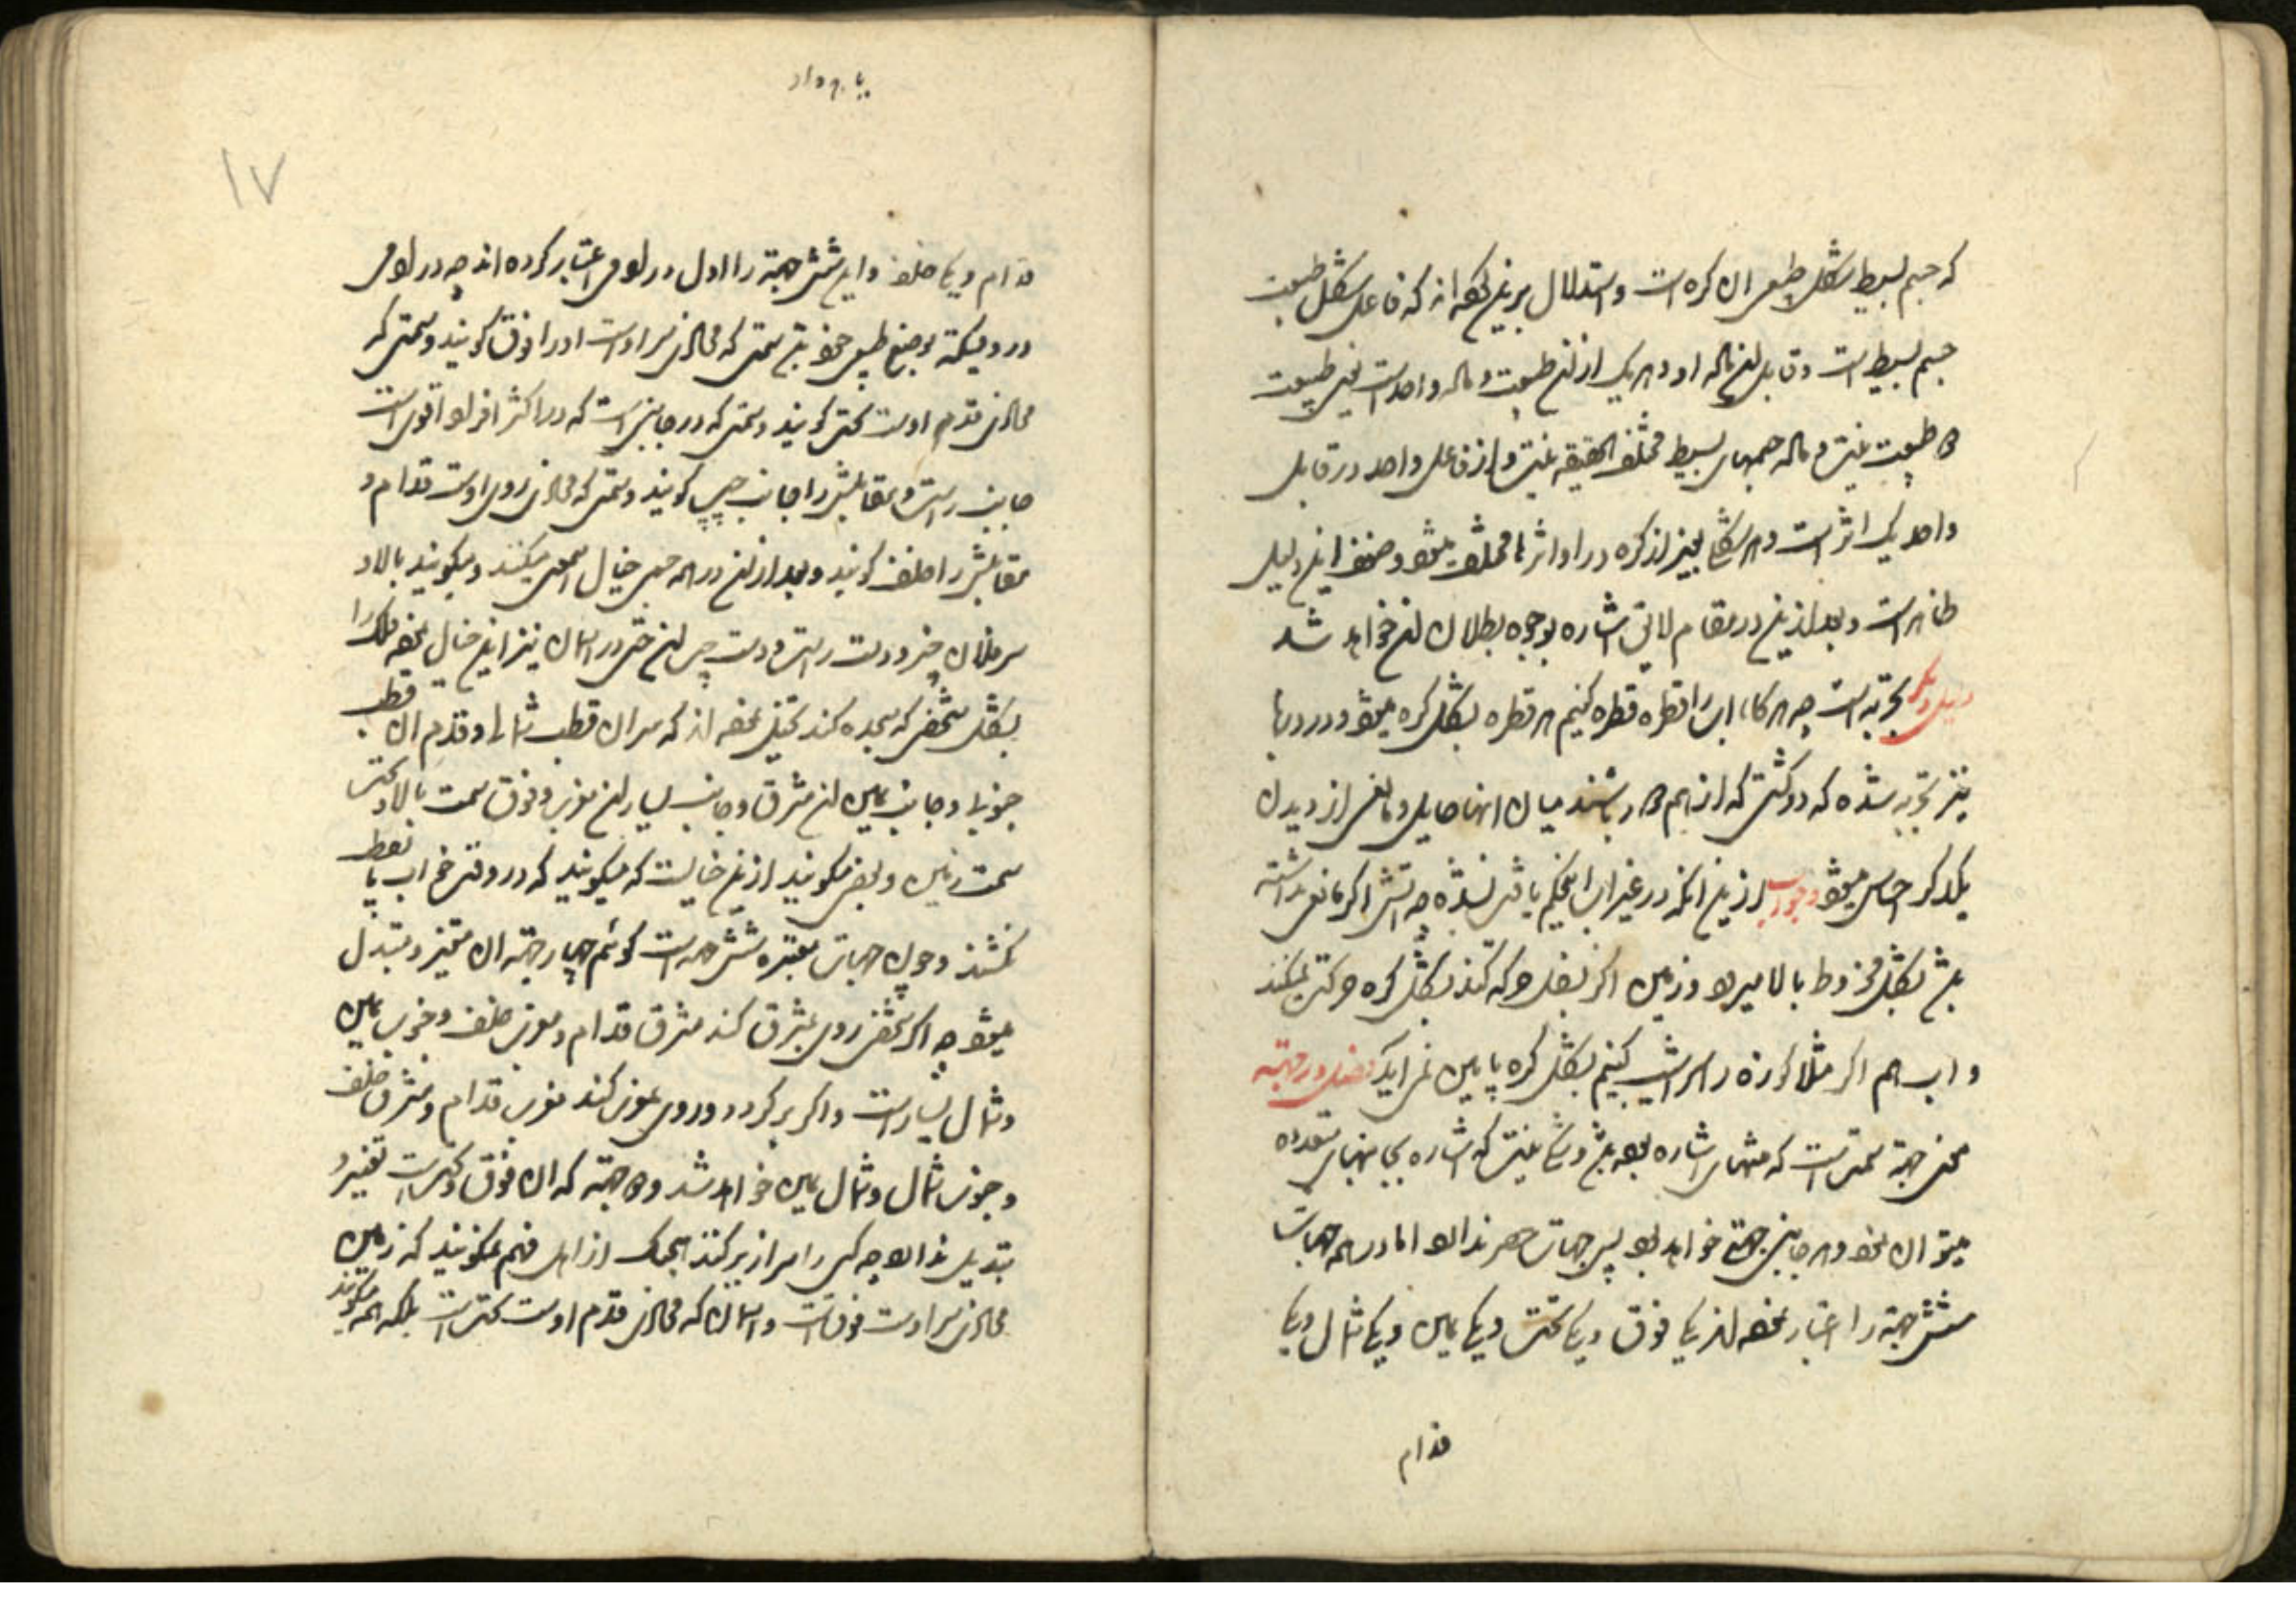 که جسم بسیط بشکل طبیعی ان کره است و استدلال برین نموده اند که فاعل شکل طبیعت
جسم بسیط است و قابل این ماده او و هر یک از این طبیعت و ماده واحد است یعنی طبیعت
طبیعت نیست و ماده جسمهای بسیط مختلف الحقیقه نیست و از فاعل واحد در قابل
واحد یک اثر است و هر شکل بغیر از کره در او اثرها مختلف میشود و ضعف این دلیل
ظاهر است و بعد ازین در مقام لایق اشاره بوجوه بطلان این خواهد شد
دلیل دیگر تجربه است چه هرگاه اب را قطره قطره کنیم هر قطره بشکل کره میشود و در دریا
نیز تجربه شده که دو کشتی که از هم دور باشند میان انها حایل و مانعی از دیدن
یکدیگر احساس میشود وجواب ازین انکه در غیر اب این حکم یافت نشده چه اتش اگر مانعی نداشته
باشد بشکل مخروط بالا میرود و زمین اگر بثقل حرکه کند بشکل کره حرکت نمیکند
و اب هم اگر مثلا کوزه را سراشیب کنیم بشکل کره پایین نمی اید فصل در جهته
معنی جهة سمتی است که منتهای اشاره بوده باشد و شک نیست که اشاره بجانبهای متعدده
میتوان نمود و هر جانبی جهة خواهد بود پس جهات حصر ندارد اما در همه جهات
شش جهة را اعتبار نموده اند یکی فوق و یکی تحت و یکی یمین و یکی شمال و یکی
قدام
۱۷
قدام و یکی خلف و این شش جهة را اول در ادمی اعتبار کرده اند چه در ادمی
در وقتیکه بوضع طبیعی خود باشد سمتی که محاذی سر اوست اورا فوق گویند و سمتی که
محاذی قدم اوست تحت گویند و سمتی که در جانبی است که در اکثر افراد اقوی است
جانب راست و مقابلش را جانب چپ گویند و سمتی که محاذی روی اوست قدام و
مقابلش را خلف گویند و بعد از این در همه جسمی خیال این معنی میکنند و میگویند بالا و
سر فلان چیز و دست راست و دست چپ این حتی در اسمان نیز این خیال نموده فلک را
بشکل شخصی که سجده کند تخیل نموده اند که سر ان قطب شمالی و قدم ان قطب
جنوبی و جانب یمین این مشرق و جانب یسار این مغرب و فوق سمت بالا و تحت
سمت زمین و بعضی میگویند ازین خیالیست که میگویند که در وقت خراب یا
نکشند و چون جهات معتبره شش جهت است گوئیم چهار جهته ان متغیر و متبدل
میشود چه اگر شخصی روی بمشرق کند مشرق قدام و مغرب خلف و جنوب یمین
و شمال یسار است و اگر برگردد و روی بمغرب کند مغرب قدام و مشرق خلف
و جنوب شمال و شمال یمین خواهد شد و دو جهته که ان فوق و تحت است تغییر و
تبدیل ندارد چه کسی را سرازیر کنند هیچیک از اهل فهم نمیگویند که زمین
محاذی سر اوست فوق است و اسمان که محاذی قدم اوست تحت است بلکه همه میگویند